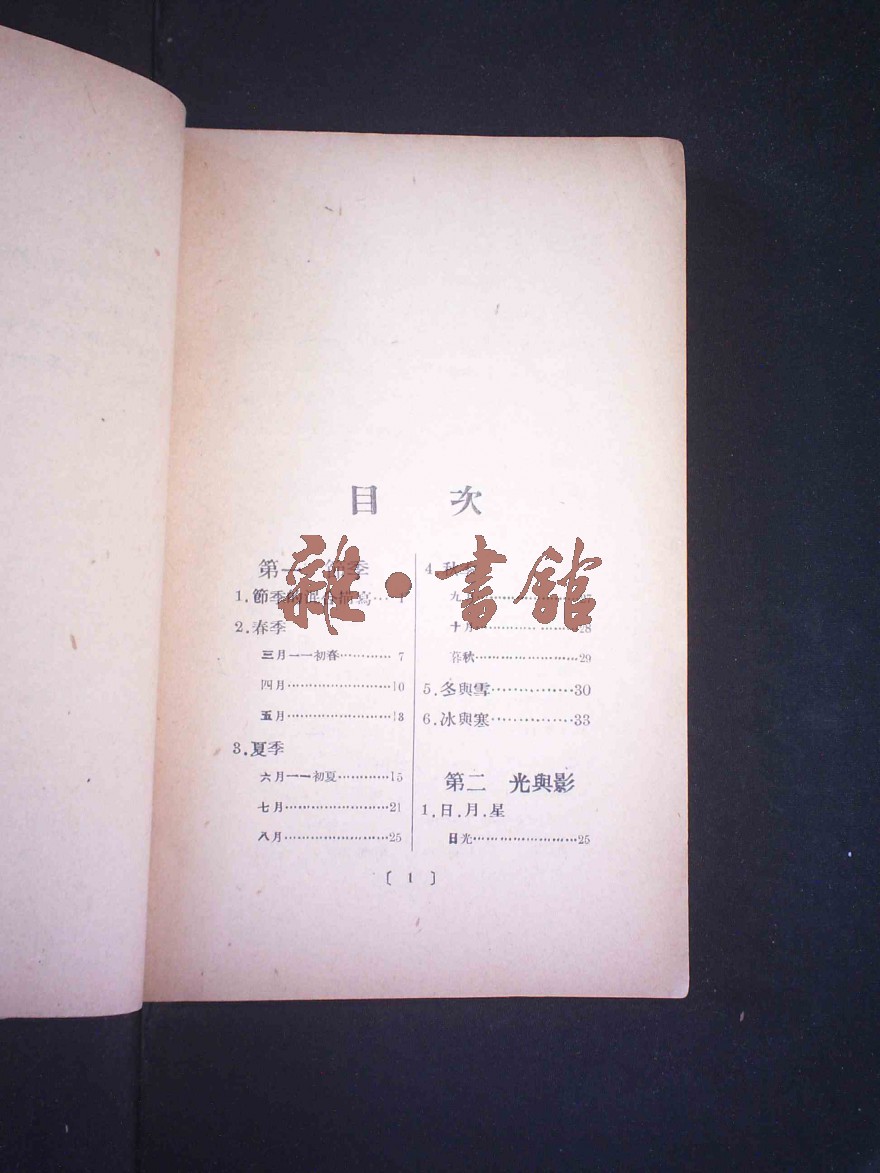 目 次
第一 節季
1.節季的混合描寫…1
2.春季
三月——初春…………7
四月……………………10
五月……………………13
3.夏季
六月——初夏…………15
七月……………………21
八月……………………25
4.秋季
九月
十月……………………28
暮秋……………………29
5.冬與雪……………30
6.冰與寒……………33
第二 光與影
1.日.月.星
日光……………………25
〔 1 〕
雜·書館